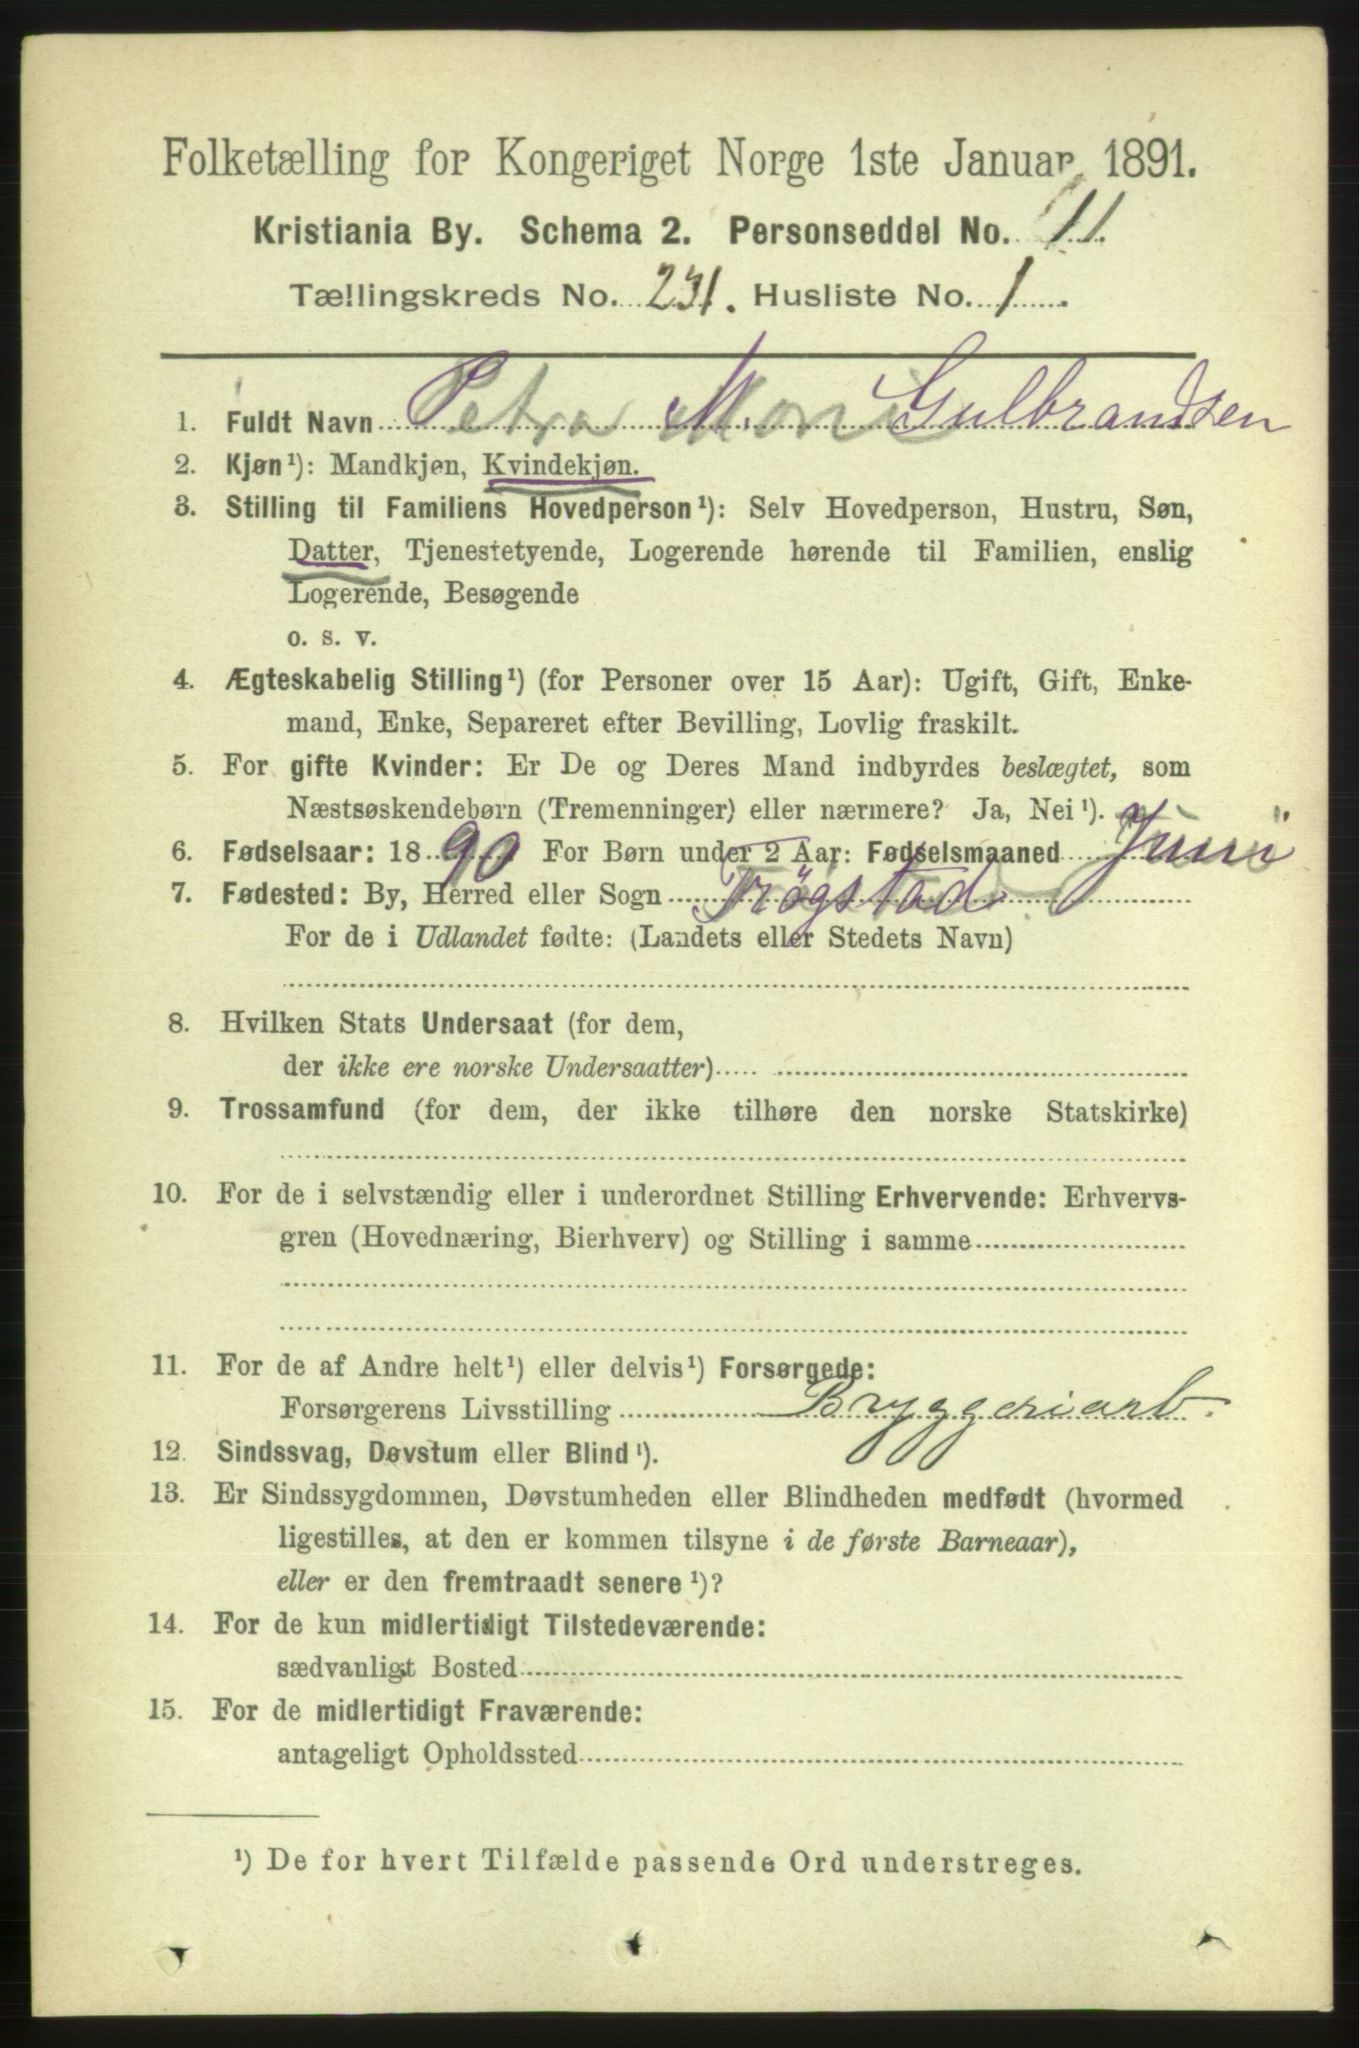 Folketælling for Kongeriget Norge 1ste Januar 1891.
Kristiania By. Schema 2. Personseddel No. 11.
Tællingskreds No. 231. Husliste No. 1.
1. Fuldt Navn Petra M. Gulbrandsen
2. Kjøn¹): Mandkjøn, Kvindekjøn.
3. Stilling til Familiens Hovedperson¹): Selv Hovedperson, Hustru, Søn,
Datter, Tjenestetyende, Logerende hørende til Familien, enslig
Logerende, Besøgende
o. s. v.
4. Ægteskabelig Stilling¹) (for Personer over 15 Aar): Ugift, Gift, Enke-
mand, Enke, Separeret efter Bevilling, Lovlig fraskilt.
5. For gifte Kvinder: Er De og Deres Mand indbyrdes beslægtet, som
Næstsøskendebørn (Tremenninger) eller nærmere? Ja, Nei¹).
6. Fødselsaar: 1890 For Børn under 2 Aar: Fødselsmaaned Juni
7. Fødested: By, Herred eller Sogn Trøgstad
For de i Udlandet fødte: (Landets eller Stedets Navn)
8. Hvilken Stats Undersaat (for dem,
der ikke ere norske Undersaatter)
9. Trossamfund (for dem, der ikke tilhøre den norske Statskirke)
10. For de i selvstændig eller i underordnet Stilling Erhvervende: Erhvervs-
gren (Hovednæring, Bierhverv) og Stilling i samme
11. For de af Andre helt¹) eller delvis¹) Forsørgede:
Forsørgerens Livsstilling Bryggeriarb.
12. Sindssvag, Døvstum eller Blind¹).
13. Er Sindssygdommen, Døvstumheden eller Blindheden medfødt (hvormed
ligestilles, at den er kommen tilsyne i de første Barneaar),
eller er den fremtraadt senere¹)?
14. For de kun midlertidigt Tilstedeværende:
sædvanligt Bosted
15. For de midlertidigt Fraværende:
antageligt Opholdssted
¹) De for hvert Tilfælde passende Ord understreges.